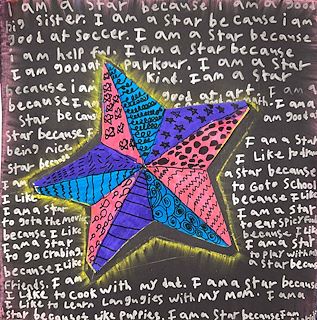 am a star because I am a
big sister. I am a star because i am
good at soccer. I am a star because
I am help ful. I am a star because
I am good at Parkour. I am a star
because i am kind. I am a star
because I am good at art. I am a
star because I am good a
star because I
being nice. I am a star
star because I Like to draw
I am I am a star
because because
I Like to Go to School
I am a star I am a star
to go to the movie to eat spicy food
because I Like because I Like
I am a star I am a star
to go crabing. to play with my
because I Like a star because
friends. I am a star
I Like to cook with my dad. I am a star because
I Like to Learn Langugies with my mom. I am a
star because I Like puppies. I am a star because I am